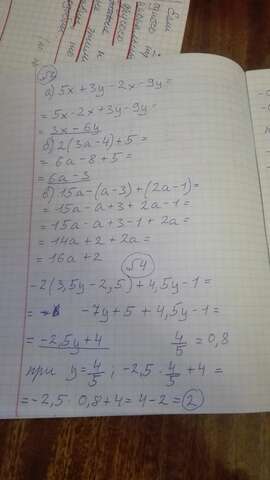 №3
а) 5x+3y-2x-9y=
=5x-2x+3y-9y=
=3x-6y
б) 2(3a-4)+5=
=6a-8+5=
=6a-3
в) 15a-(a-3)+(2a-1)=
=15a-a+3+2a-1=
=15a-a+3-1+2a=
=14a+2+2a=
=16a+2
№4
-2(3,5y-2,5)+4,5y-1=
= -7y+5+4,5y-1=
=-2,5y+4 4/5=0,8
при y=4/5; -2,5·4/5+4=
=-2,5·0,8+4=4-2=2